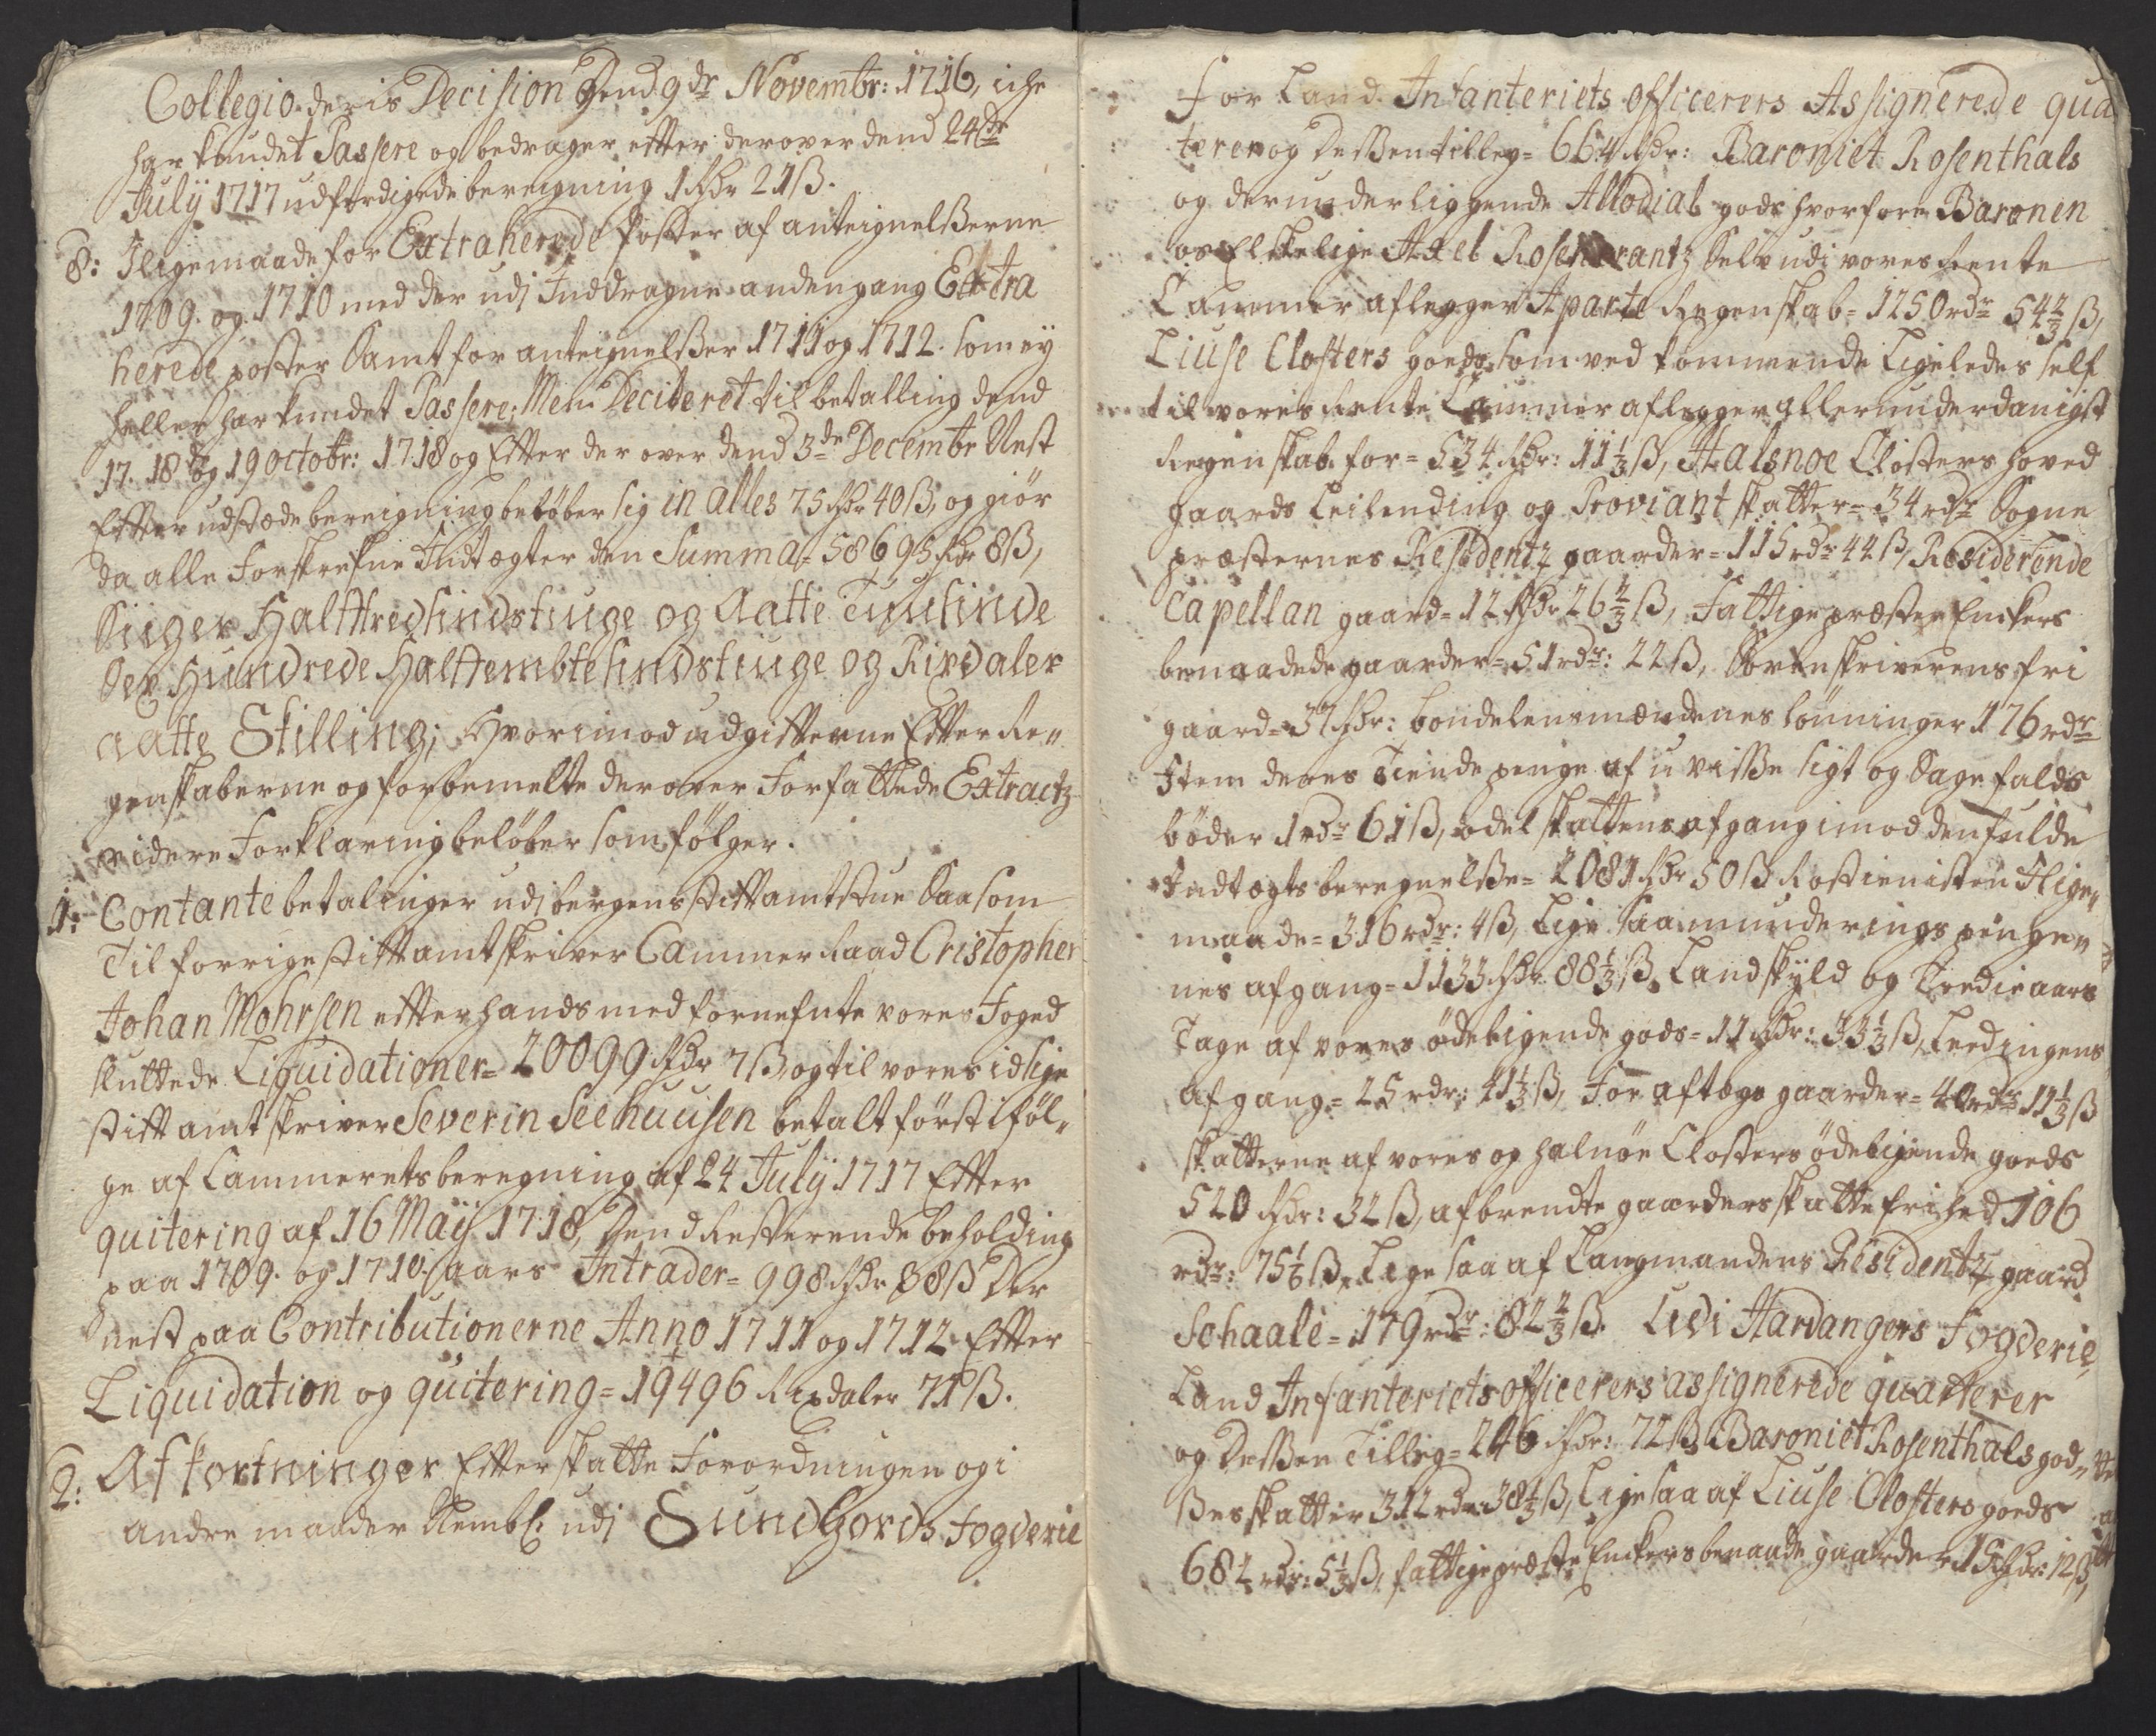 Collegio deris Decision Dend 9dr Novembr: 1716, iche
har kundet Passere og bedrager efter derover dend 24de
July 1717 udferdigede beregning 1 Rdr 21ß.
8: Iligemaade for Extraherede Poster af anteignelßerne
1709. og 1710 med der udj Inddragne andengang Extra
herede poster Samt for anteignelßer 1711 og 1712. som ey
heller har kundet Passere; Men Decideret til betalling dend
17. 18de og 19 octobr: 1718 og Efter der over dend 3de Decembr Nest
Efter udstæde beregning beløber sig in alles 75 Rdr 40ß, og giør
da alle Forskrefne Indtægter den Summa= 58695 Rdr 8ß,
Siiger Halfftredsindstiuge og Aatte Tuusinde
Sex Hundrede Halffembtesindstiuge og Rixdaler
Aatte Skilling; Hvorimod udgifterne Efter Re„
genskaberne og forbemelte derover Forfattede Extractz
widere Forklaring beløber som følger.
1: Contante betalinger udj bergens stiftamtstue Saasom
Til forrige stiftamtskriver Cammerraad Cristopher
Johan Mohrsen efterhands med fornefnte vores Foged
sluttede Liquidationer= 20099 Rdr 7ß, og til vores idsige
stiftamtskriver Severin Seehuusen betalt først i føl„
ge af Cammerets beregning af 24 July 1717 Efter
quitering af 16 Maij 1718, Dend Resterende beholding
paa 1709. og 1710. aars Intrader= 998 Rdr 38ß Der
nest paa Contributionerne Anno 1711 og 1712 Efter
Liquidation og quitering= 19496 Rixdaler 71ß.
2: Afkortninger Efter skatte Forordningen og i
andre maader Nembl: udj Sundhords Fogderie
For Land Infanteriets officerers Assignerede qua
terer og Deßen tilleg= 664 Rdr: Baroniet Rosenthals
og derunder liggende Allodial gods hvorfore Baronen
os Elskelige Axel Rosenkrantz Selv udi vores Rente
Cammer aflegger Aparte Regenskab= 1250 rdr 54 2/3 ß,
Liuse Closters goeds som ved kommende Ligeledes self
til vores Rente Cammer aflegger allerunderdanigst
Regenskab for= 534 Rdr: 11 1/3 ß, Halsnoe Closters hoved
gaards Leilending og Proviant skatter= 34 rdr Sogne
præsternes Residentz gaarder= 115 rdr 44ß, Residerende
Capellan gaard= 12 Rdr 26 2/3 ß, Fattige præster Enkers
benaadede gaarder= 51 rdr: 22ß, Sorenskriverens fri
gaard= 37 Rdr: bondelensmændenes lønninger 176 rdr
Item deres Tiende penge af u visse sigt og Sagefalds
bøder 1 rdr 61ß, odel skattens afgang imod den fulde
Indtægts beregnelße= 2081 Rdr 50ß Rostienisten Ilige„
maade= 316 rdr: 4ß, Lige Saa munderings penge„
nes afgang= 1133 Rdr 88 1/3 ß, Landskyld og Tredieaars
Tage af vores ødeligende gods= 11 Rdr: 33 1/3 ß, Ledingens
afgang= 25 rdr: 41 1/3 ß, For aftags gaarder= 40 rdr 11 1/3 ß
skatterne af vores og halsnøe Closters ødeligende goeds
520 Rdr: 32ß, afbrendte gaarders skatte frihed 106
rdr: 75 1/6 ß, Lige saa af Langmandens Residentz gaard
Schaale= 179 rdr: 82 2/3 ß. Udi Hardangers Fogderie,
Land Infanteriets officerers assignerede quarterer
og Deßen Tilleg= 246 Rdr: 72ß Baroniet Rosenthals god„
ßes skatter 312 rdr 38 1/3 ß, Lige saa af Liuse Closters goeds
682 rdr: 5 1/3 ß, fattige præste Enkers benaade gaarder 15 Rdr: 12ß,